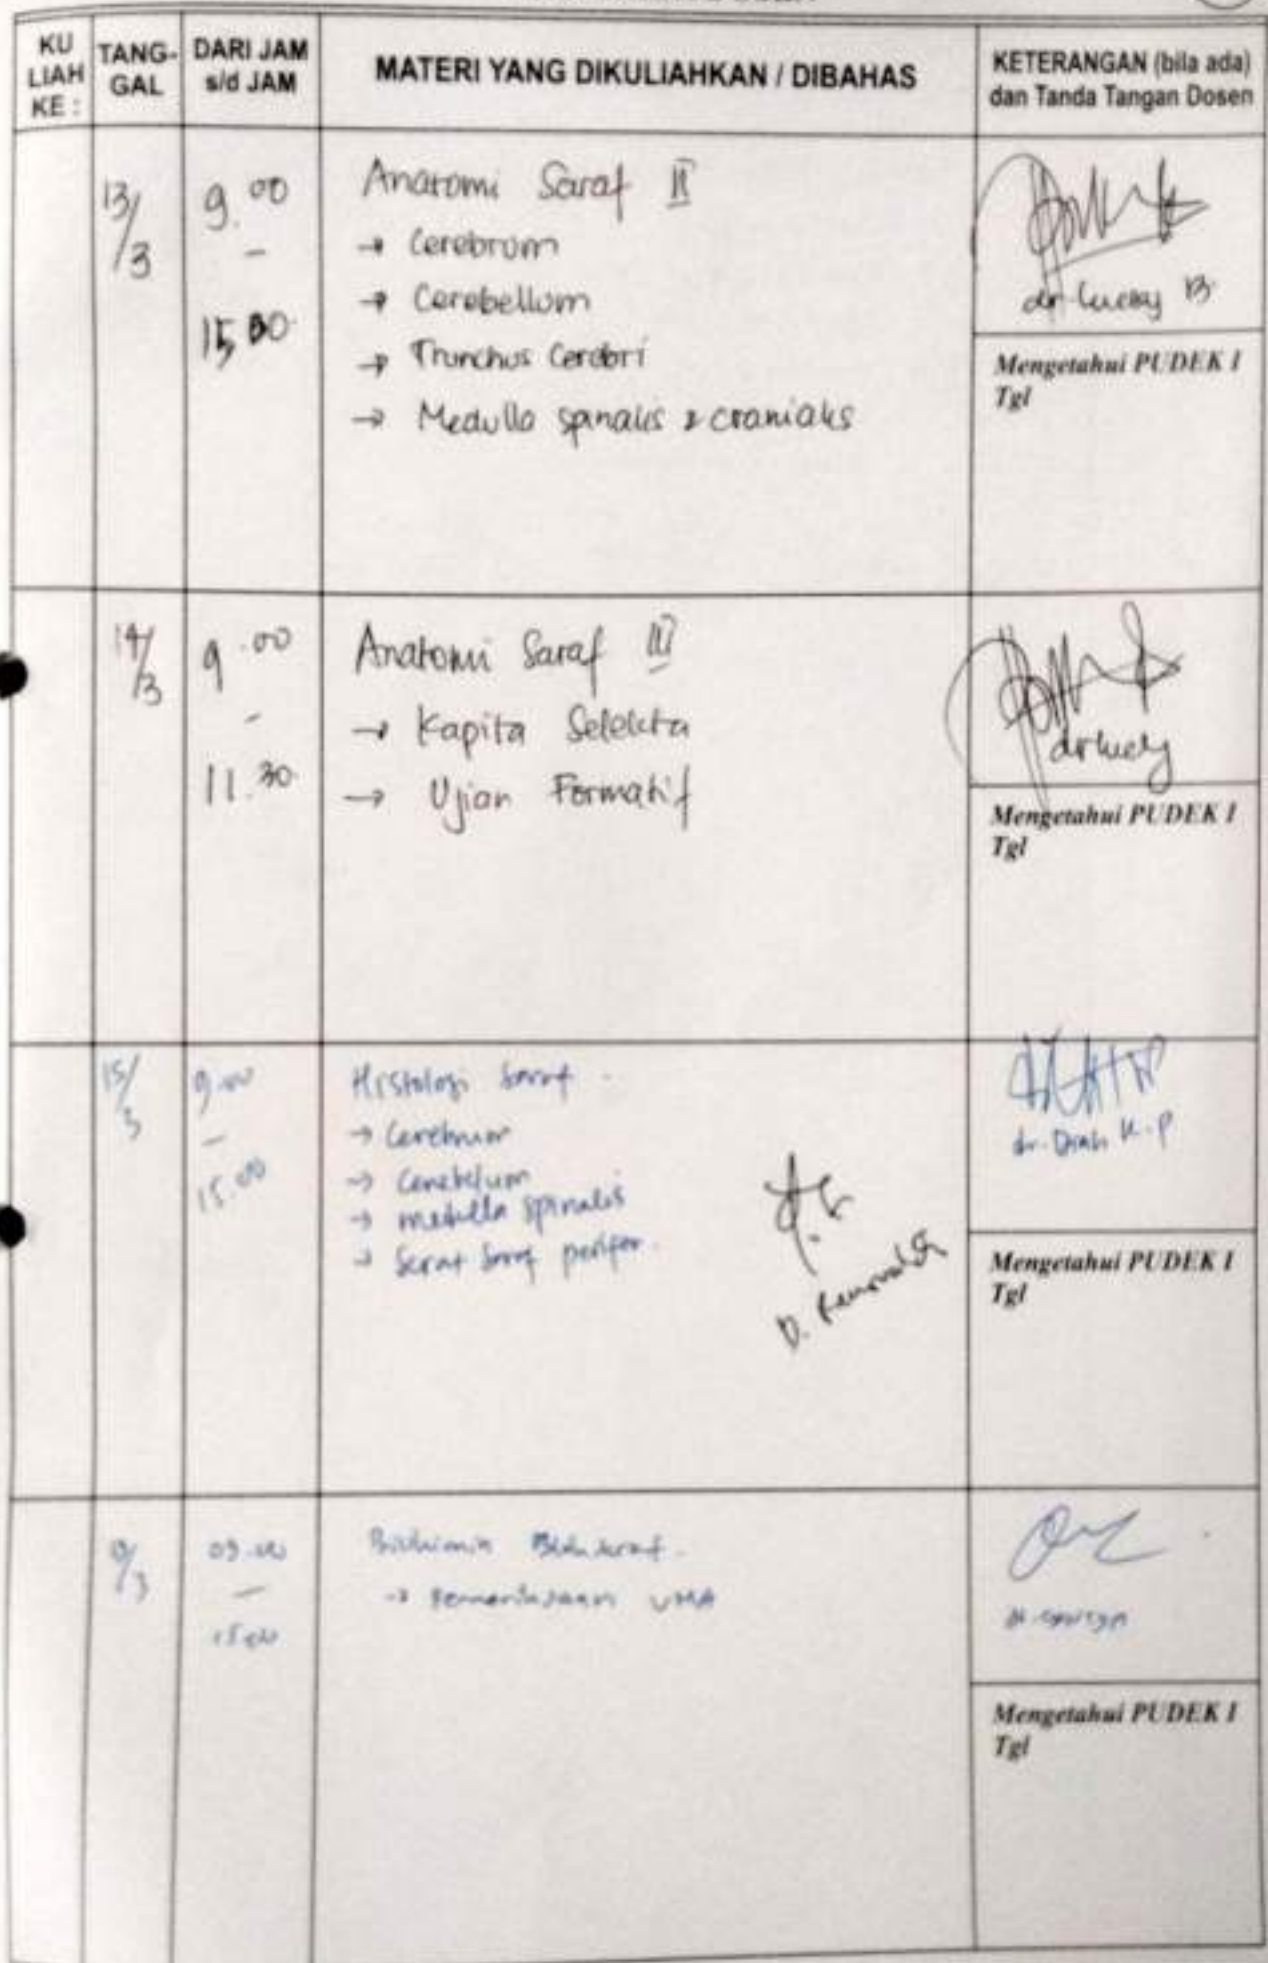 KU LIAH KE :
TANG-GAL
DARI JAM s/d JAM
MATERI YANG DIKULIAHKAN / DIBAHAS
KETERANGAN (bila ada) dan Tanda Tangan Dosen
13/3
9.00
-
15.00
Anatomi Saraf II
→ Cerebrum
→ Cerebellum
→ Trunchus Cerebri
→ Medulla spinalis & cranialis
Mengetahui PUDEK I
Tgl
14/3
9.00
-
11.30
Anatomi Saraf III
→ Kapita Selekta
→ Ujian Formatif
Mengetahui PUDEK I
Tgl
15/3
9.00
-
15.00
Histologi Saraf
→ Cerebrum
→ Cerebelum
→ medulla spinalis
→ Serat Saraf perifer.
dr. Diah K.P
Mengetahui PUDEK I
Tgl
09.00
-
15.00
→ Pemeriksaan VMA
Mengetahui PUDEK I
Tgl